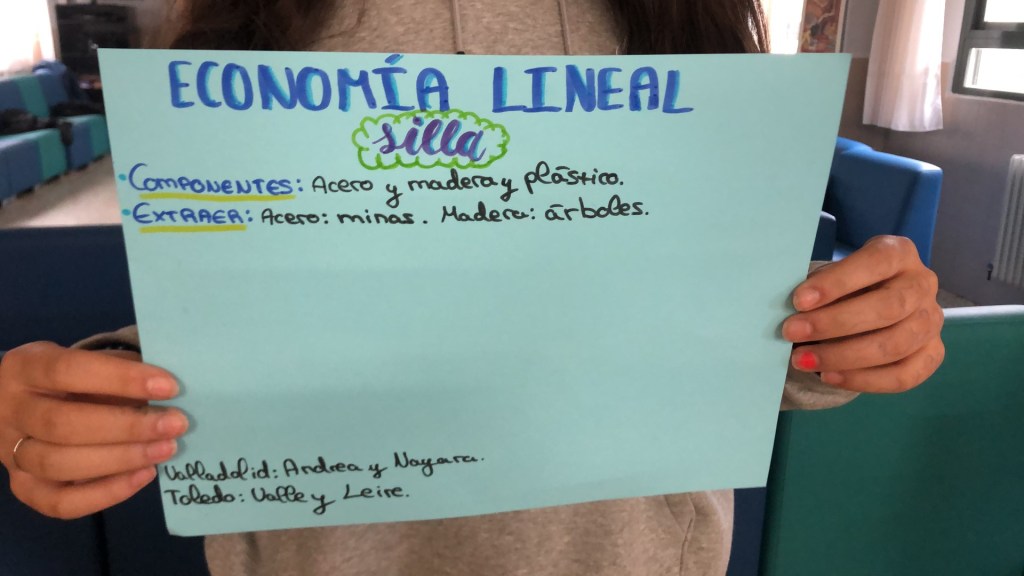 ECONOMÍA LINEAL
silla
• COMPONENTES: Acero y madera y plástico.
• EXTRAER: Acero: minas. Madera: árboles.
Valladolid: Andrea y Nayara.
Toledo: Valle y Leire.